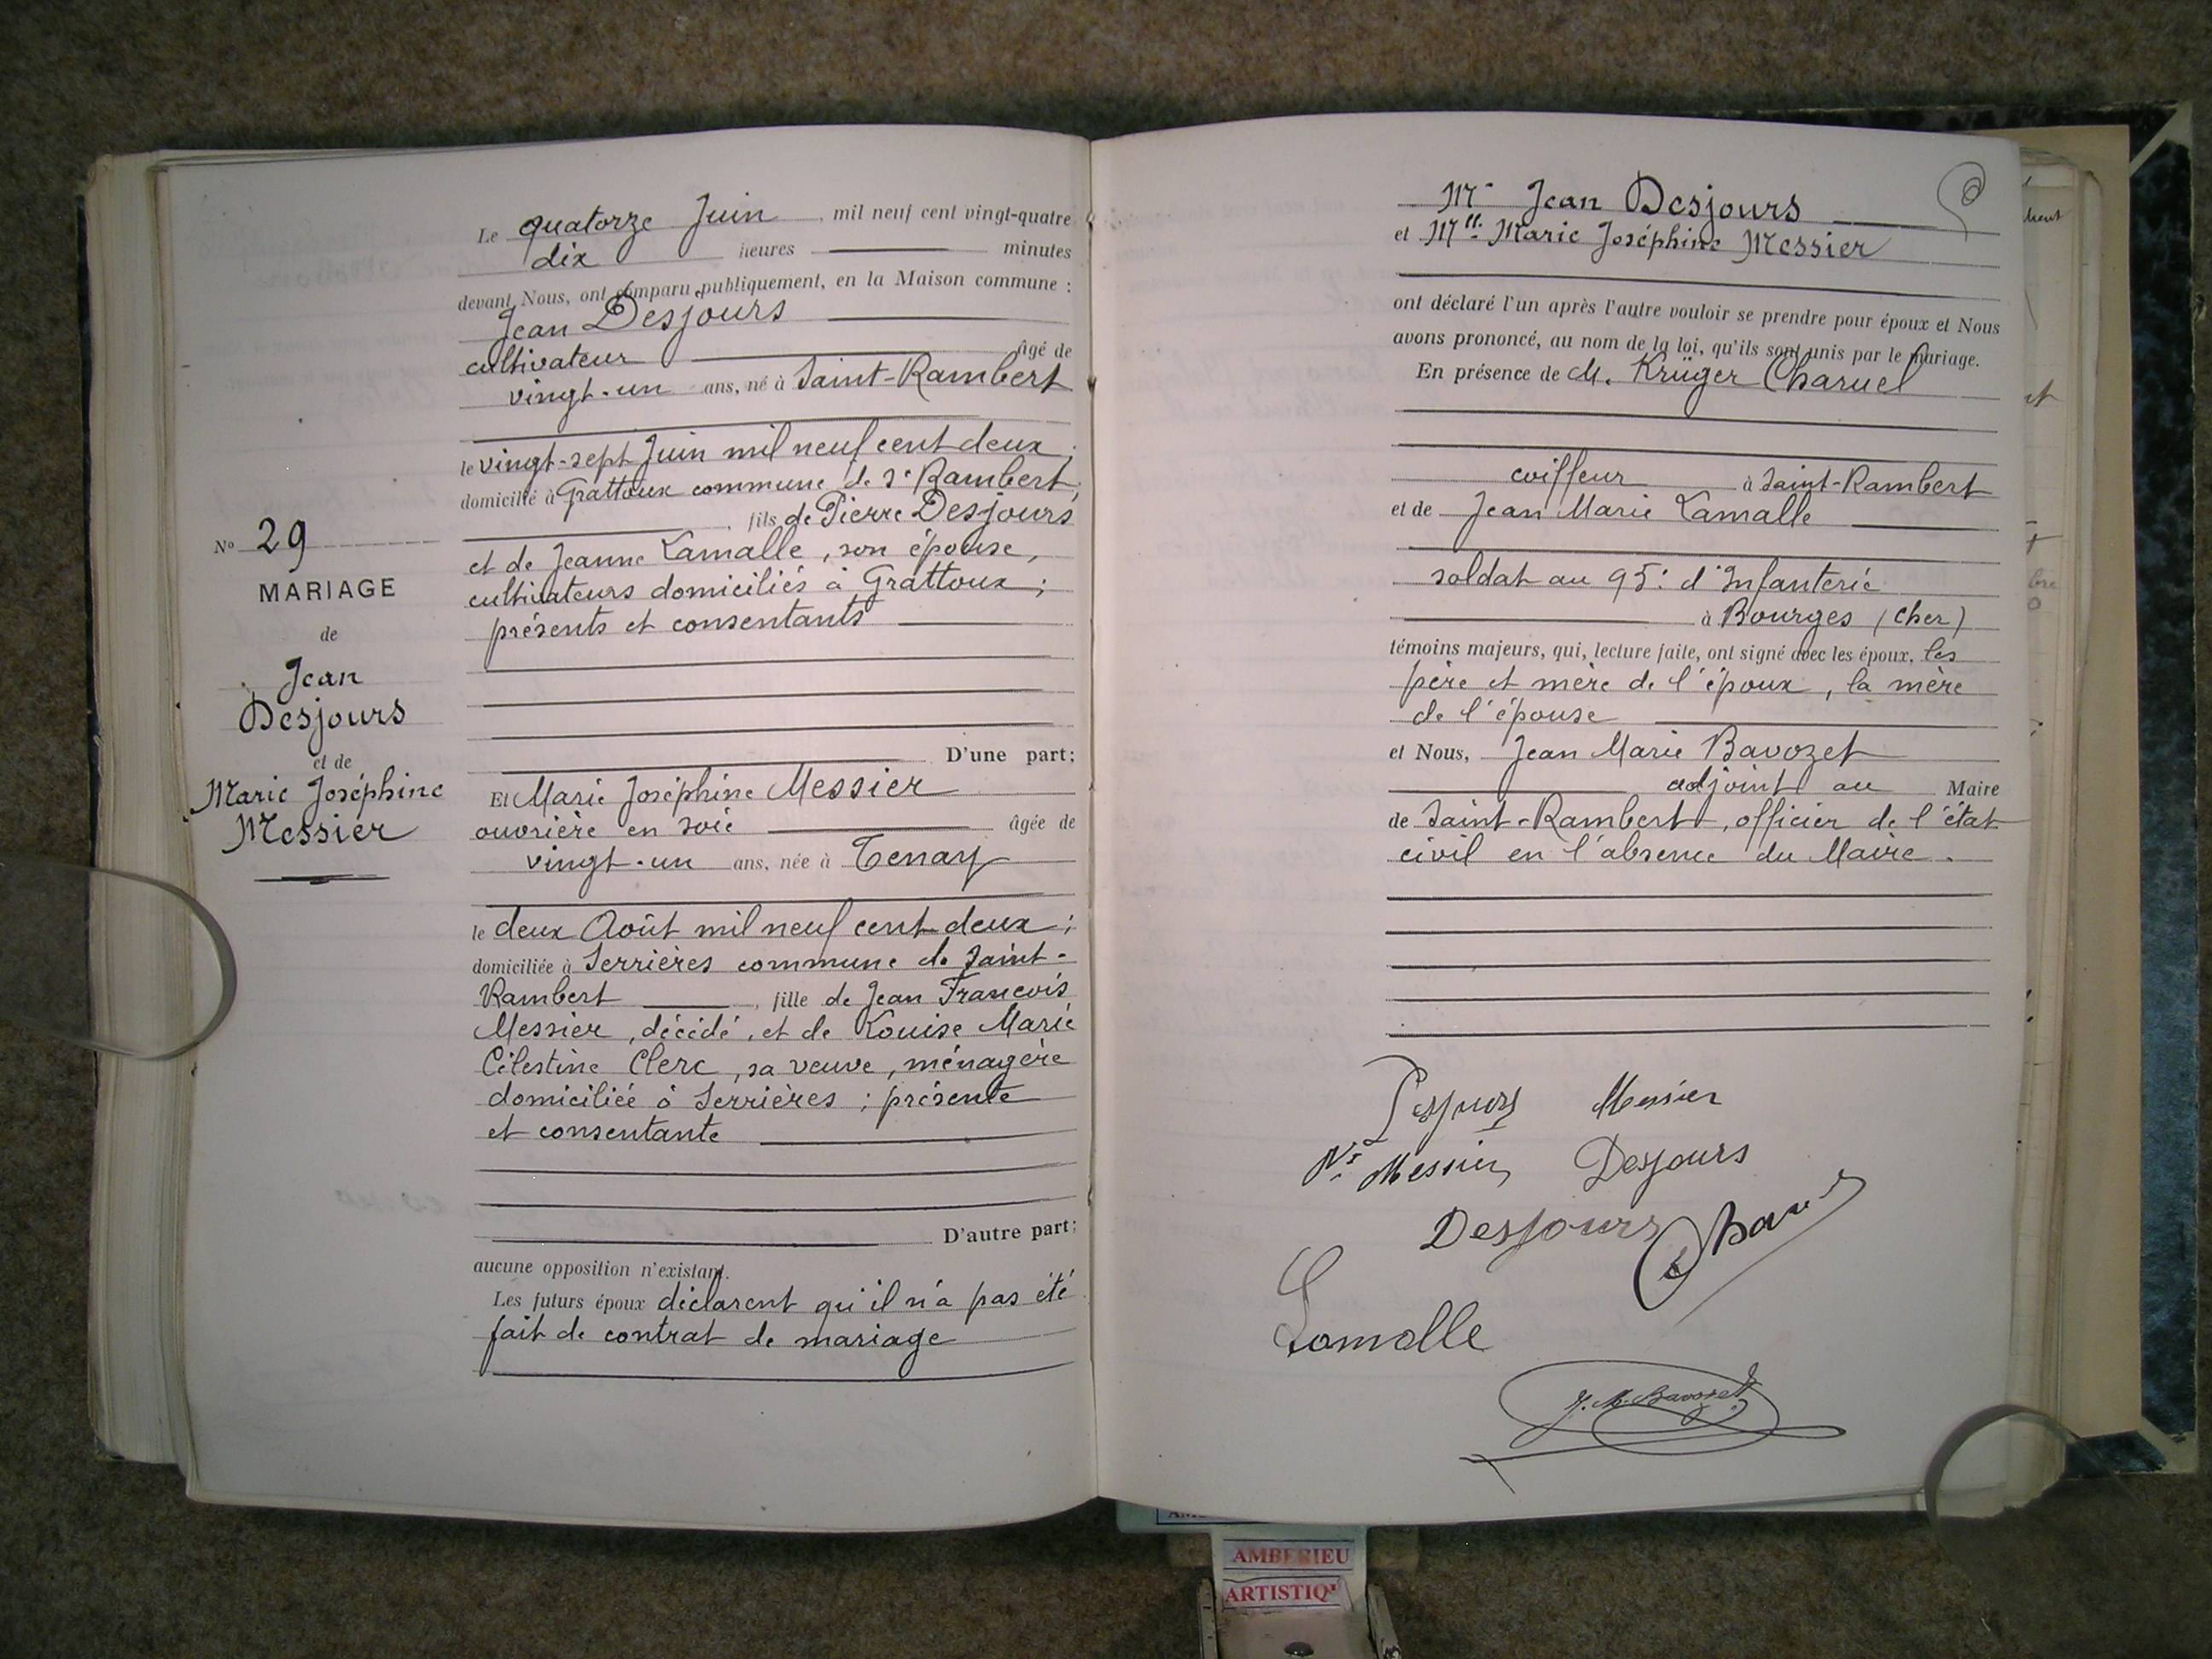 Le quatorze Juin, mil neuf cent vingt-quatre
dix heures minutes
devant Nous, ont comparu publiquement, en la Maison commune :
Jean Desjours
cultivateur âgé de
vingt-un ans, né à Saint-Rambert
le vingt-sept Juin mil neuf cent deux ;
domicilié à Grattoux commune de St Rambert,
, fils de Pierre Desjours
et de Jeanne Lamalle, son épouse,
cultivateurs domiciliés à Grattoux ;
présents et consentants
D'une part ;
No 29
MARIAGE
de
Jean
Desjours
et de
Marie Joséphine
Messier
Et Marie Joséphine Messier
ouvrière en soie âgée de
vingt-un ans, née à Tenay
le deux Août mil neuf cent deux ;
domiciliée à Serrières commune de Saint-
Rambert, fille de Jean François
Messier, décédé, et de Louise Marie
Célestine Clerc, sa veuve, ménagère
domiciliée à Serrières ; présente
et consentante
D'autre part ;
aucune opposition n'existant.
Les futurs époux déclarent qu'il n'a pas été
fait de contrat de mariage
Mr Jean Desjours
et Mlle Marie Joséphine Messier
ont déclaré l'un après l'autre vouloir se prendre pour époux et Nous
avons prononcé, au nom de la loi, qu'ils sont unis par le mariage.
En présence de M. Krüger Charuel
coiffeur à Saint-Rambert
et de Jean Marie Lamalle
soldat au 95e d'Infanterie
à Bourges (Cher)
témoins majeurs, qui, lecture faite, ont signé avec les époux, les
père et mère de l'époux, la mère
de l'épouse
et Nous, Jean Marie Bavozet
adjoint au Maire
de Saint-Rambert, officier de l'état
civil en l'absence du Maire.
Desjours Messier
Ve Messier Desjours
Desjours
Lamalle
J. M. Bavozet
AMBERIEU
ARTISTIQ